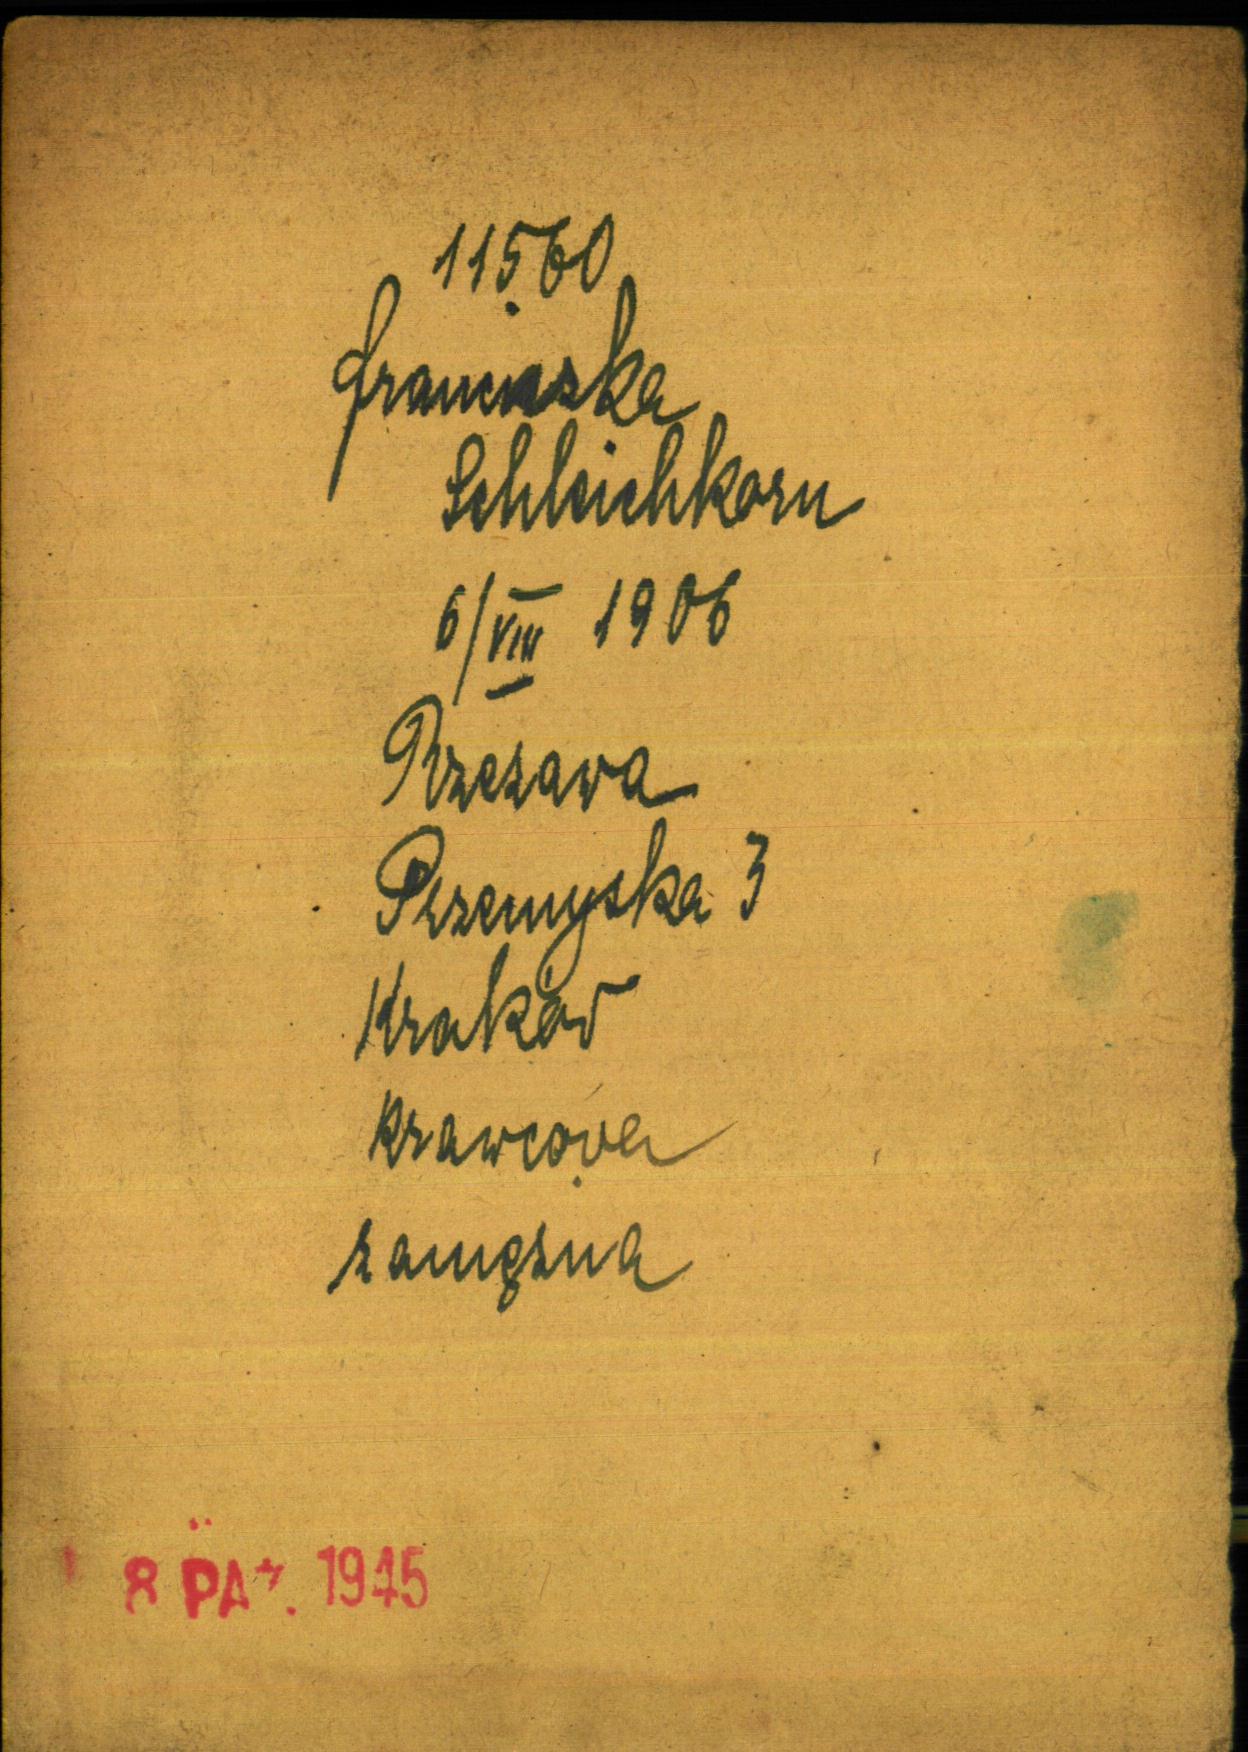 11560
Franciszka
Schleichkorn
6/VIII 1906
Rzezawa
Przemyska 3
Kraków
krawcowa
zamężna
8 PAŹ. 1945